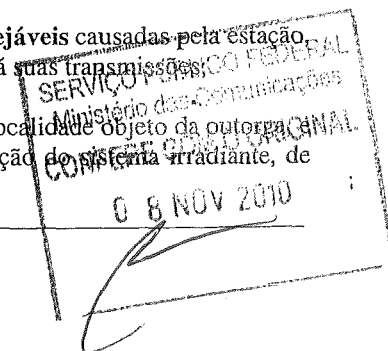 ejáveis causadas pela estação,
á suas transmissões;
ocalidade objeto da outorga, e
ção do sistema irradiante, de
SERVIÇO PÚBLICO FEDERAL
Ministério das Comunicações
CONFERE COM O ORIGINAL
0 8 NOV 2010